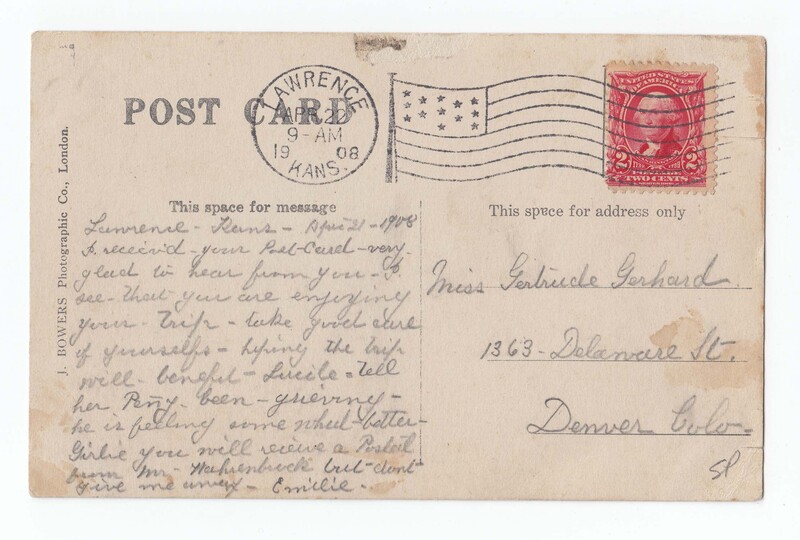 POST CARD
LAWRENCE
APR 22
9-AM
19 08
KANS.
UNITED STATES
OF AMERICA
2 2
POSTAGE
TWO CENTS
J. BOWERS Photographic Co., London.
This space for message
Lawrence - Kans - April 21 - 1908
I receiv'd - your Post-Card - very
glad to hear from you - I
see - that you are enjoying
your - Trip - take good care
of yourselfs - hoping the trip
will - benefit - Lucile - tell
her been - grieving -
he is feeling some what - better -
Girlie you will recieve a Postal
from Mr - Wahrenbrock but - dont -
give me away - Emilie -
This space for address only
Miss Gertrude Gerhard
1363 - Delaware St.
Denver Colo -